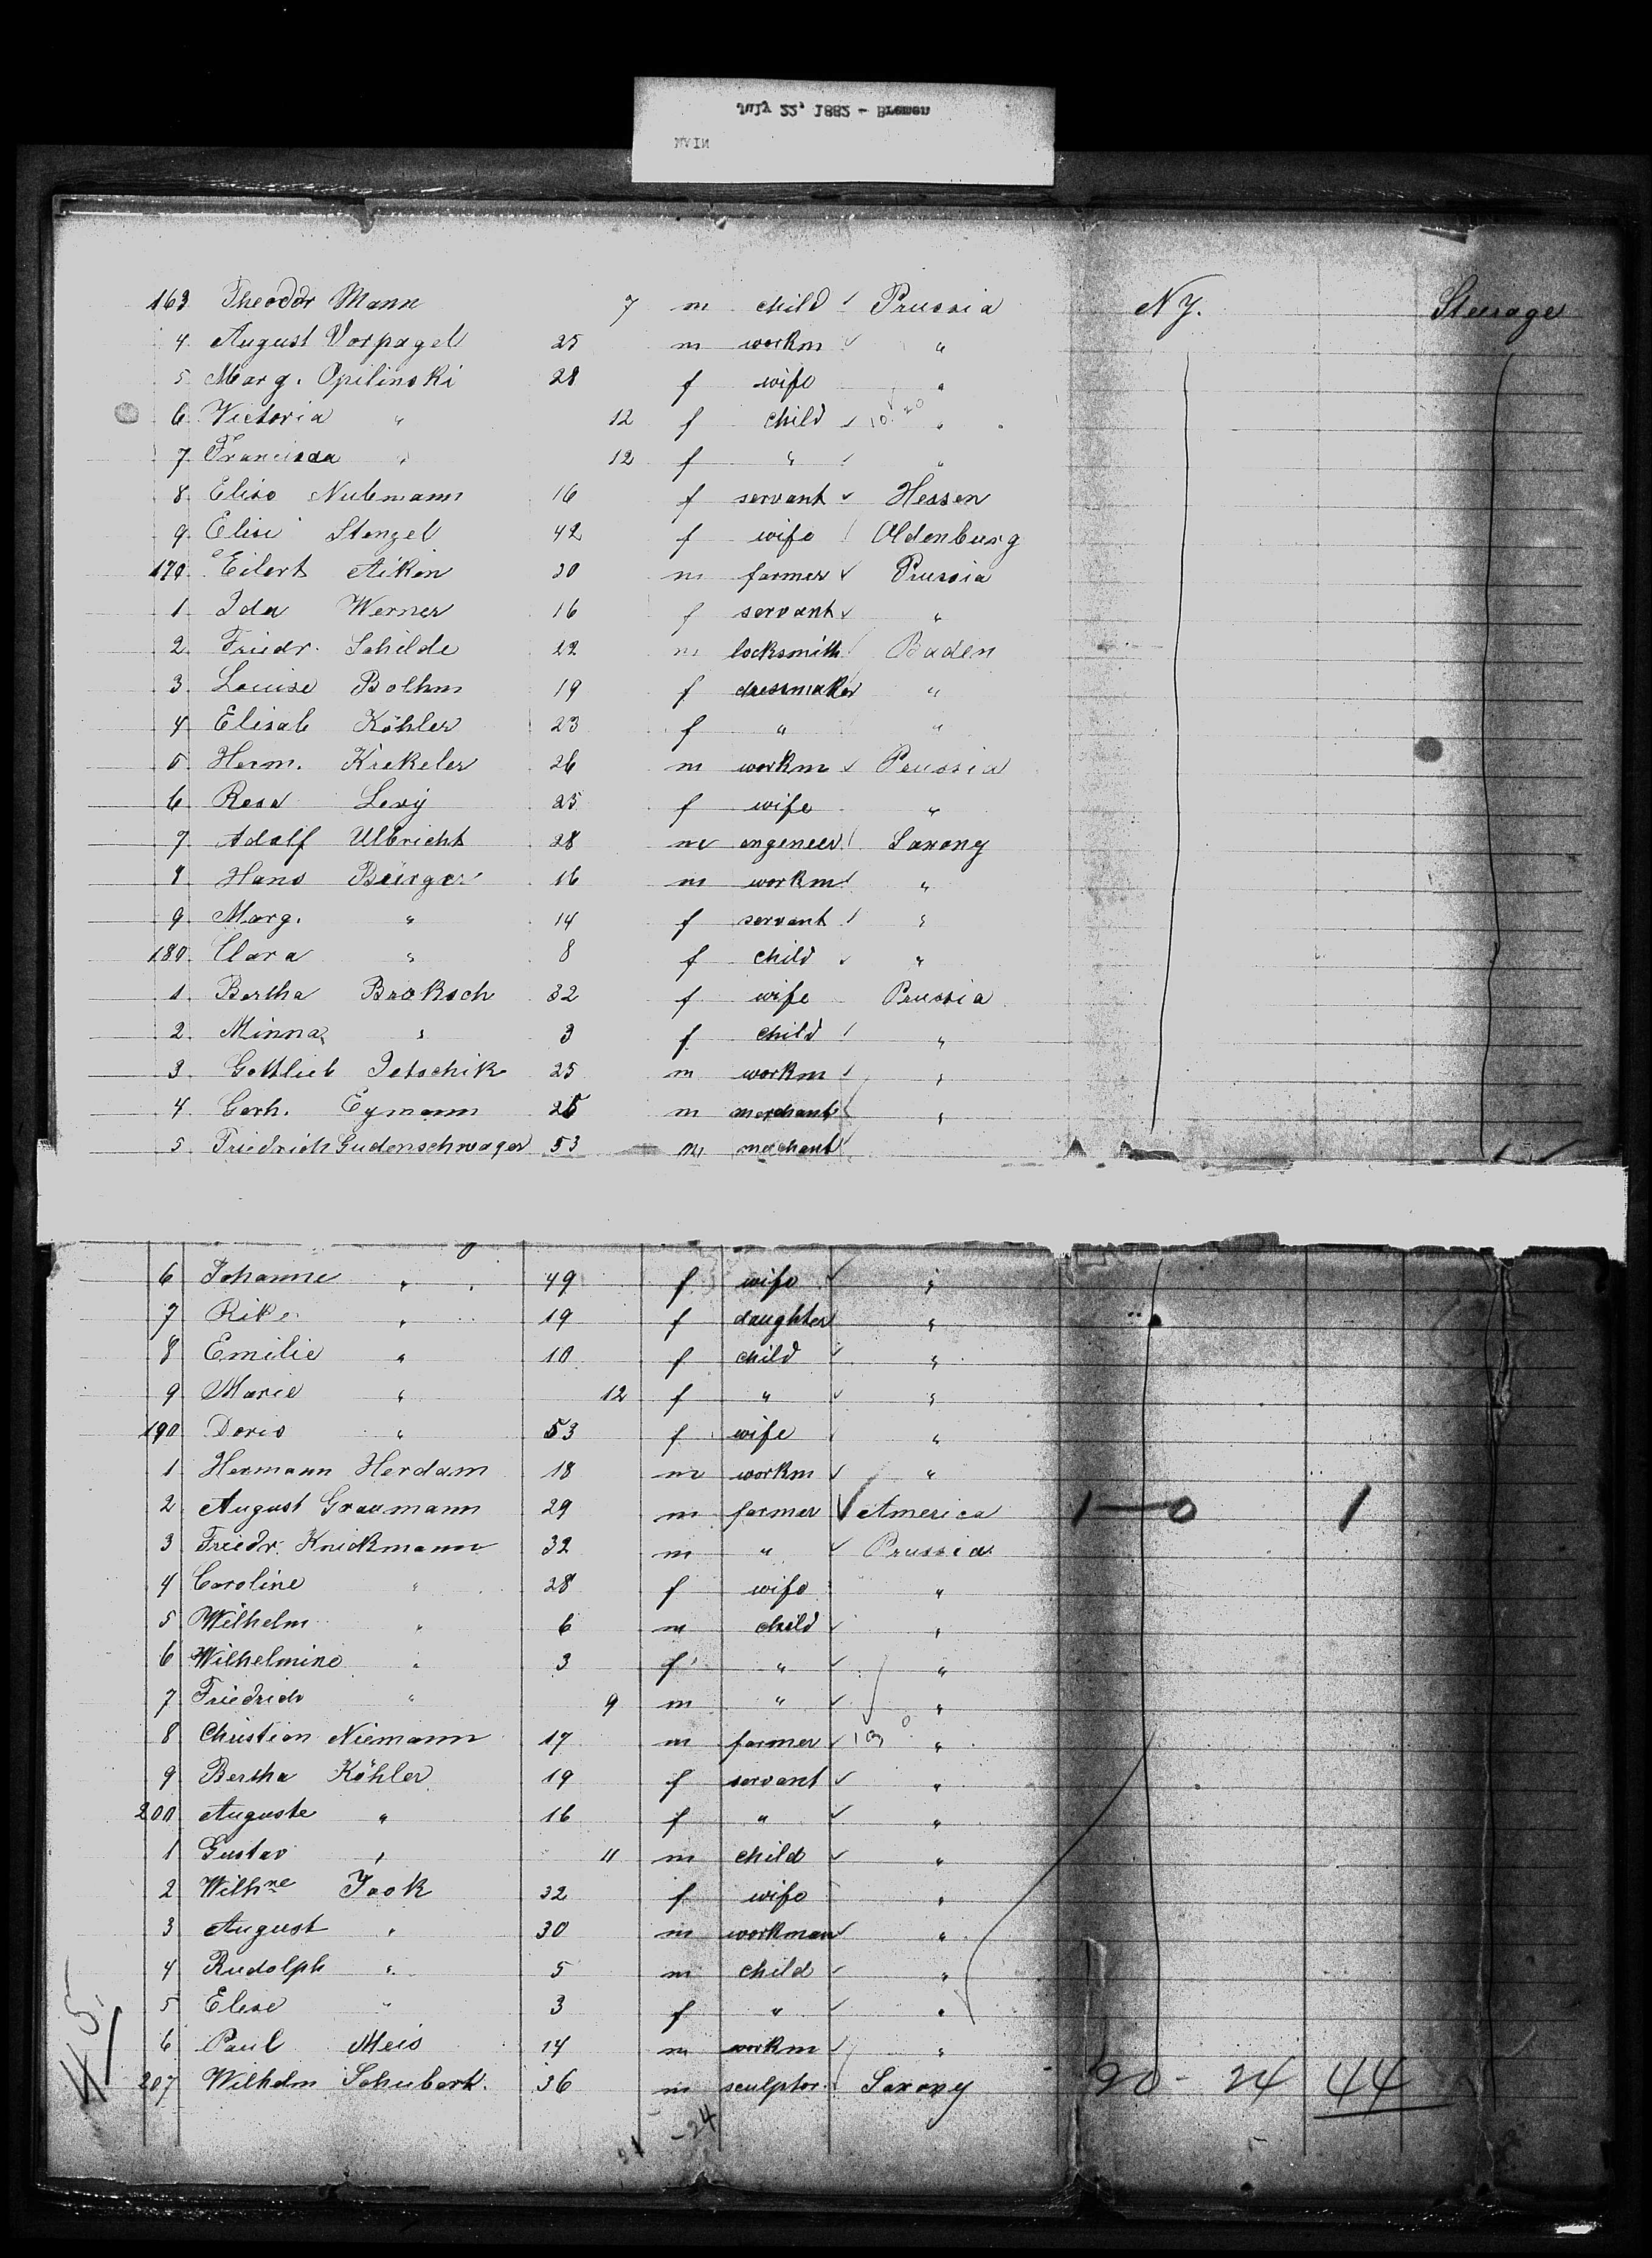 July 22, 1882 - Bremen
MAIN
163 Theodor Mann 7 m child Prussia N.Y. Steerage
4 August Vorpagel 25 m workm "
5 Marg. Opilinski 28 f wife "
6 Victoria " 12 f child "
7 Francisca " 12 f " "
8 Elise 16 f servant Hessen
9 Elise Stenzel 42 f wife Oldenburg
170 Eilert Aiken 30 m farmer Prussia
1 Ida Werner 16 f servant "
2 Friedr. Schilde 22 m locksmith Baden
3 Louise Bolhm 19 f dressmaker "
4 Elisab Köhler 23 f " "
5 Herm. Krekeler 26 m workm Prussia
6 Rosa Levy 25 f wife "
7 Adolf Ulbricht 28 m engeneer Saxony
8 Hans Bürger 16 m workm "
9 Marg. " 14 f servant "
180 Clara " 8 f child "
1 Bertha Broksch 32 f wife Prussia
2 Minna " 3 f child "
3 Gottlieb Jetschik 25 m workm "
4 Gerh. Eymann 25 m merchant "
5 Friedrich Gudenschwager 53 m mechant
6 Johanne " 49 f wife "
7 Rike " 19 f daughter "
8 Emilie " 10 f child "
9 Marie " 12 f " "
190 Doris " 53 f wife "
1 Hermann Herdam 18 m workm "
2 August Graumann 29 m farmer America 1-0 1
3 Friedr. Knickmann 32 m " Prussia
4 Caroline " 28 f wife "
5 Wilhelm " 6 m child "
6 Wilhelmine " 3 f " "
7 Friedrich " 9 m " "
8 Christian Niemann 17 m farmer "
9 Bertha Köhler 19 f servant "
200 Auguste " 16 f " "
1 Gustav " 11 m child "
2 Wilhne Jook 32 f wife "
3 August " 30 m workman "
4 Rudolph " 5 m child "
5 Elise " 3 f " "
6 Paul Meis 14 m workm "
207 Wilhelm Schubert. 36 m sculptor Saxony 20 - 24 44
-24